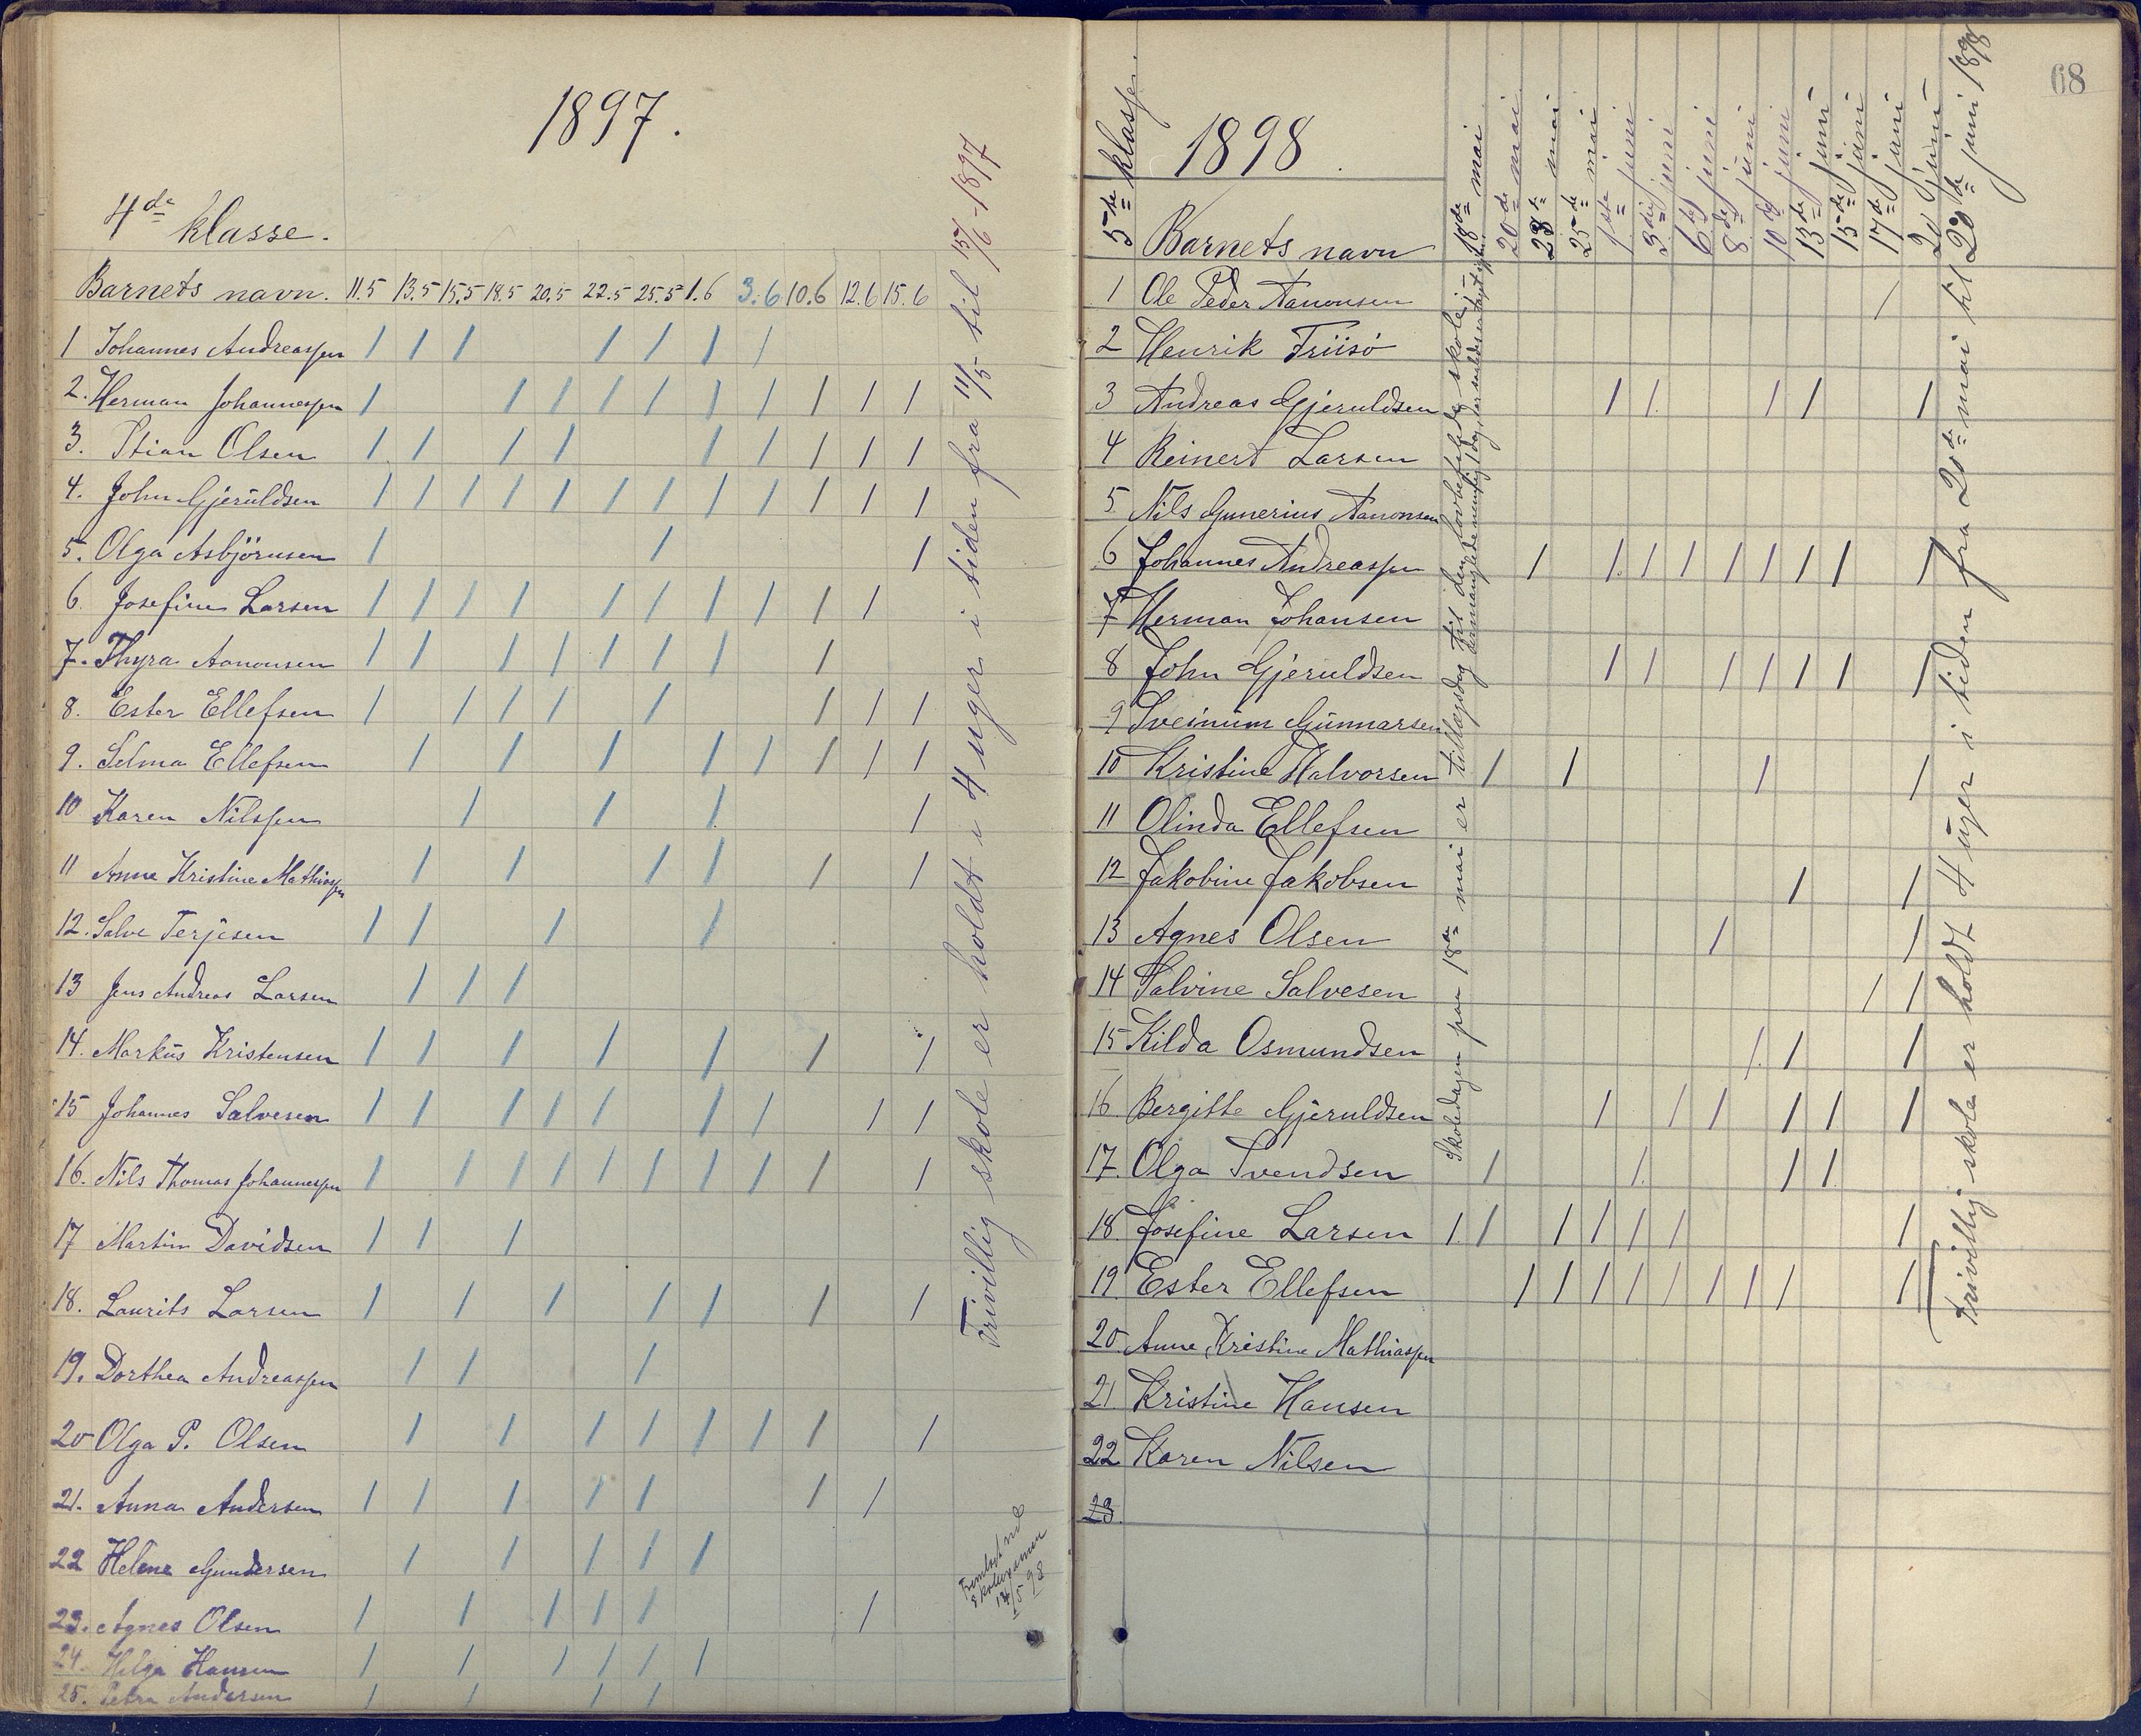 1897.
4de klasse.
Barnets navn. 11.5 13.5 15.5 18.5 20.5 22.5 25.5 1.6 3.6 10.6 12.6 15.6
1 Johannes Andreassen / / / / / / /
2. Herman Johannessen / / / / / / / / / / /
3. Stian Olsen / / / / / / / / /
4. John Gjeruldsen / / / / / / / / / / / /
5. Olga Asbjörnsen / / /
6. Josefine Larsen / / / / / / / / / /
7. Thyra Aanonsen / / / / / / / /
8. Ester Ellefsen / / / / / / / /
9. Selma Ellefsen / / / / / / / /
10 Karen Nilssen / / / /
11 Anne Kristine Mathiassen / / / / / /
12. Salve Terjesen / / / /
13 Jens Andreas Larsen / / /
14. Markus Kristensen / / / / / / /
15 Johannes Salvesen / / / / / / / / /
16. Nils Thomas Johannessen / / / / / / / / / /
17 Martin Davidsen / / /
18. Laurits Larsen / / / / / / /
19. Dorthea Andreassen / / /
20 Olga P. Olsen / / / / / / / /
21. Anna Andersen / / / / / / /
22 Helene Gundersen / / / / /
23. Agnes Olsen / / / / / /
24. Helga Hansen / / / / / /
25. Petra Andersen / / / /
Frivillig skole er holdt i 4 uger i tiden fra 11/5 til 15/6-1897
Fremlagt ved
14/5 98
5te klasse.
1898.
Barnets navn
18de mai
20de mai
23de mai
25de mai
1ste juni
3die juni
6te juni
8de juni
10de juni
13de juni
15de juni
17de juni
20 juni
1 Ole Peder Aanonsen /
2 Henrik Friisö
3 Andreas Gjeruldsen / / / / /
4 Reinert Larsen
5 Nils Gunerius Aanonsen
6 Johannes Andreassen / / / / / / / / /
7 Herman Johansen
8 John Gjeruldsen / / / / / / /
9 Sveinum Gunnarsen
10 Kristine Halvorsen / / / /
11 Olinda Ellefsen
12 Jakobine Jakobsen / /
13 Agnes Olsen / /
14 Salvine Salvesen / /
15 Kilda Osmundsen / / /
16. Bergitte Gjeruldsen / / / / / /
17. Olga Svendsen / / / /
18. Josefine Larsen / / / / / / /
19. Ester Ellefsen / / / / / / / / /
20. Anne Kristine Mathiassen
21 Kristine Hansen
22 Karen Nilsen
23.
Skoledagen paa 18de mai er tillagsdag til den lovbefalede skole,
Frivillig skole er holdt 4 uger i tiden fra 20de mai til 20de juni 1898
68